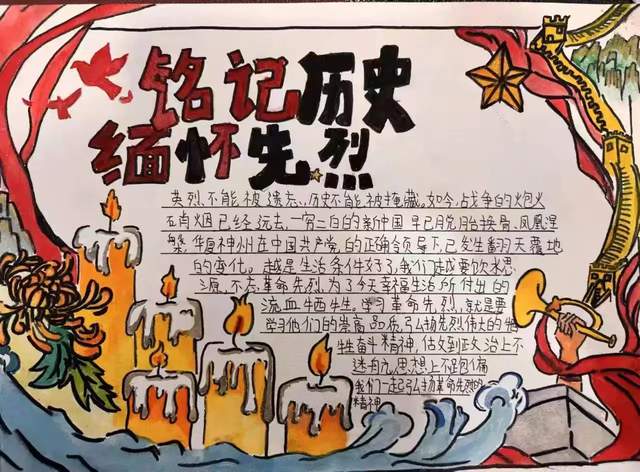 铭记历史
缅怀先烈
英烈不能被遗忘,历史不能被掩藏。如今,战争的炮火
硝烟已经远去,一穷二白的新中国早已脱胎换骨、凤凰涅
槃,华夏神州在中国共产党的正确领导下,已发生翻天覆地
的变化。越是生活条件好了,我们越要饮水思
源,不忘革命先烈为了今天幸福生活所付出的
流血牺牲。学习革命先烈,就是要
学习他们的崇高品质,弘扬先烈伟大的牺
牲奋斗精神,做到政治上不
迷航、思想上不跑偏
我们一起弘扬革命先烈的
精神